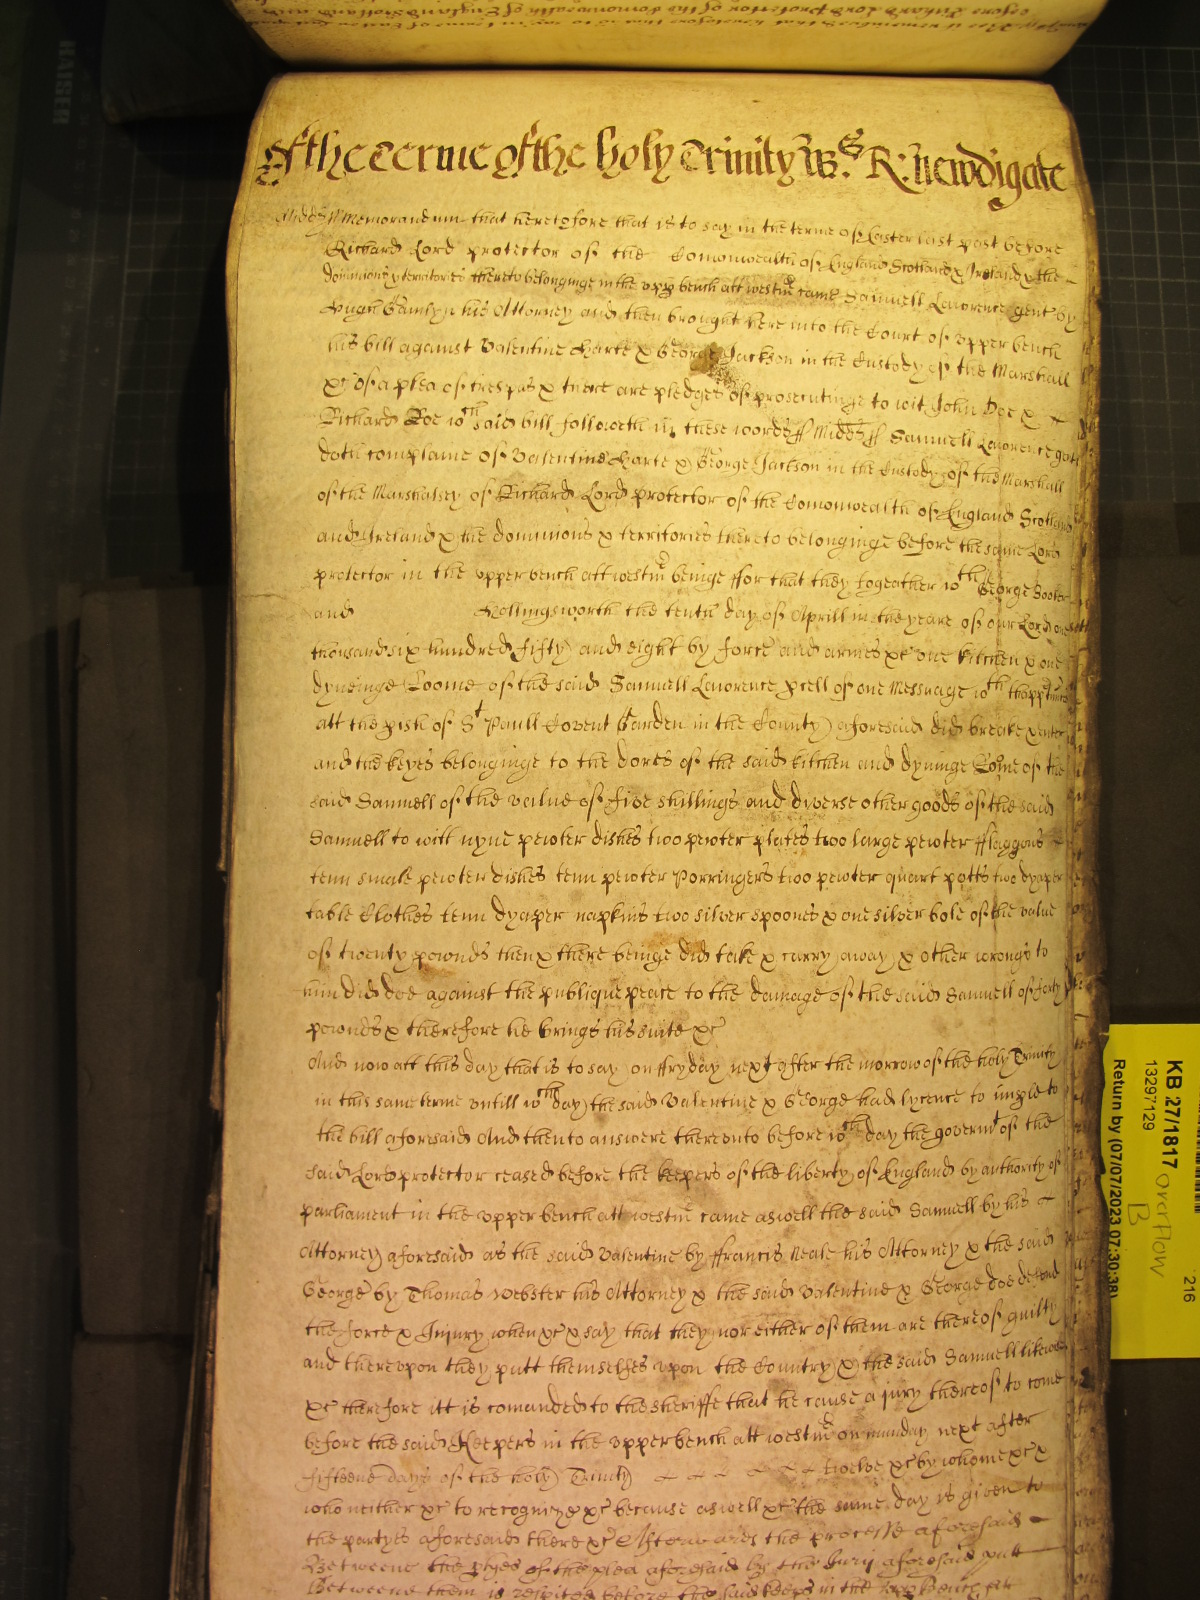 Of the Terme Of the holy Trinity Wss. R: Newdigate
Midds ss Memorandum that heretofore that is to say in the terme of Easter last past before
Richard Lord protector of the Comonwealth of England Scotland & Ireland & the
dominions & territories thereto belonginge in the upp bench att westmr came Samuell Lawrence gent by
Hugh Hamlyn his Attorney and then brought here into the Court of upper bench
his bill against Valentine Harte & George Jackson in the Custody of the Marshall
&c of a plea of trespas & there are pledges of prosecutinge to wit John Doe &
Richard Roe wch said bill followeth in these words ss Midds ss Samuell Lawrence gent
doth complaine of Valentine Harte & George Jackson in the Custody of the Marshall
of the Marshalsey of Richard Lord protector of the Comonwealth of England Scotland
and Ireland & the dominions & territories thereto belonginge before the same Lord
protector in the upper bench att westmr beinge ffor that they togeather wth George
and Hollingsworth the tenth day of Aprill in the yeare of our Lord one
thousand six hundred fifty and eight by force and armes &c one kitchen & one
dyneinge Roome of the said Samuell Lawrence pcell of one Messuage wth thapptennces
att the pish of St Paull Covent Garden in the County aforesaid did breake & enter
and the keyes belonginge to the dores of the said kitchen and dyninge Rome of the
said Samuell of the value of five shillings and diverse other goods of the said
Samuell to witt nyne pewter dishes two pewter plates two large pewter fflaggons
tenn smale pewter dishes tenn pewter Porringers two pewter quart potts two dyaper
table Clothes tenn dyaper napkins two silver spoones & one silver bole of the value
of twenty pownds then & there beinge did take & carry away & other wrongs to
him did doe against the publique peace to the damage of the said Samuell of forty
pownds & therefore he brings his suite &c
And now att this day that is to say on ffryday next after the morrow of the holy Trinity
in this same terme untill wch day the said Valentine & George had lycence to imple to
the bill aforesaid And then to answere thereunto before wch day the governmt of the
said Lord protector ceased before the keepers of the liberty of England by authority of
parliament in the upper bench att westmr came aswell the said Samuell by his
Attorney aforesaid as the said Valentine by ffrancis Neale his Attorney & the said
George by Thomas Webster his Attorney & the said Valentine & George doe defend
the force & Injury when &c & say that they nor either of them are thereof guilty
and thereupon they putt themselfes upon the Country & the said Samuell likewise
&c therefore itt is comanded to the sheriffe that he cause a jury thereof to come
before the said Keepers in the upper bench att westmr on munday next after
fifteene days of the holy Trinity twelve &c by whome &c &
who neither &c to recognize &c because aswell &c the same day is given to
the partyes aforesaid there &c Afterwards the processe aforesaid
Betweene the ptyes of the plea aforesaid by the Jury aforesaid putt
Betweene them is respited before the said keeps in the upp Bench att
KAISER
KB 27/1817
13297129
216
overflow
B
Return by (07/07/2023 07:30:38)